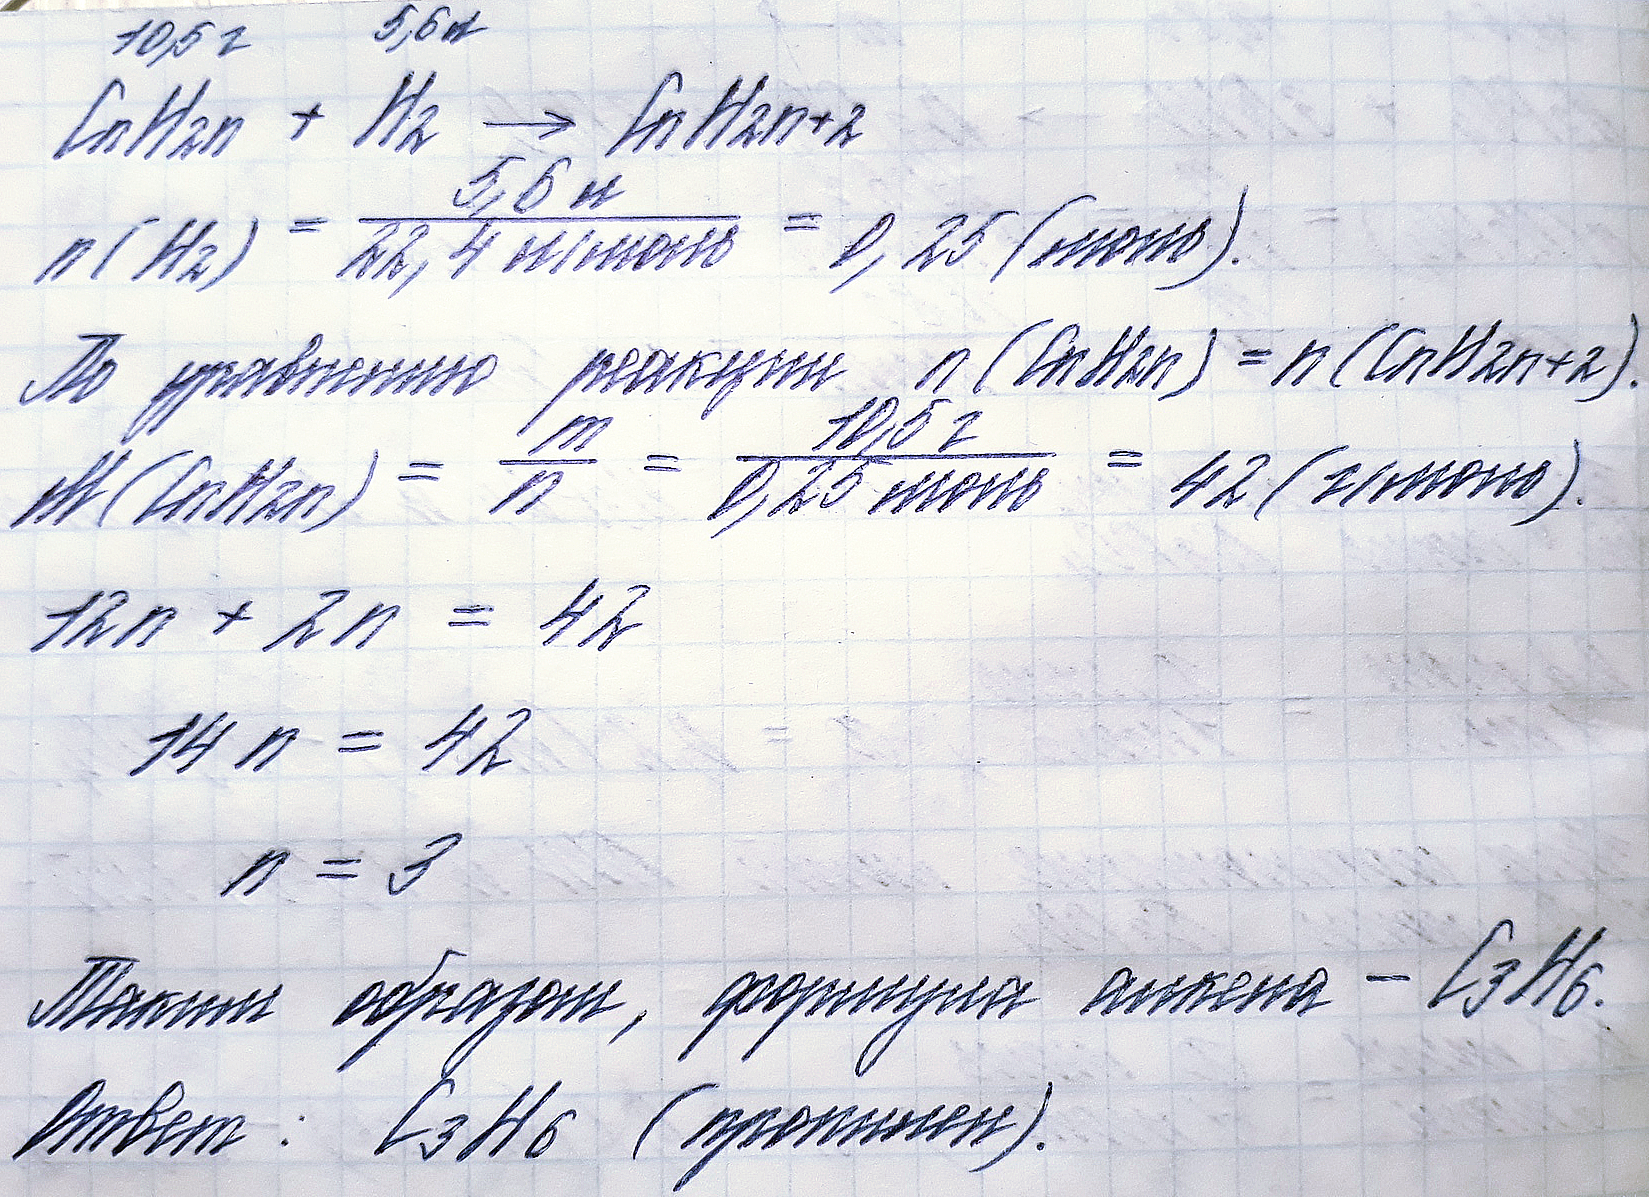 10,5 г 5,6 л
CnH2n + H2 → CnH2n+2
n(H2) = 5,6 л / 22,4 л/моль = 0,25 (моль).
По уравнению реакции n(CnH2n) = n(CnH2n+2).
M(CnH2n) = m / n = 10,5 г / 0,25 моль = 42 (г/моль).
12n + 2n = 42
14n = 42
n = 3
Таким образом, формула алкена – C3H6.
Ответ: C3H6 (пропилен).